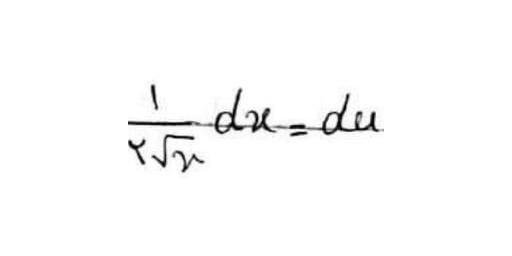 ۱/(۲√x) dx = du